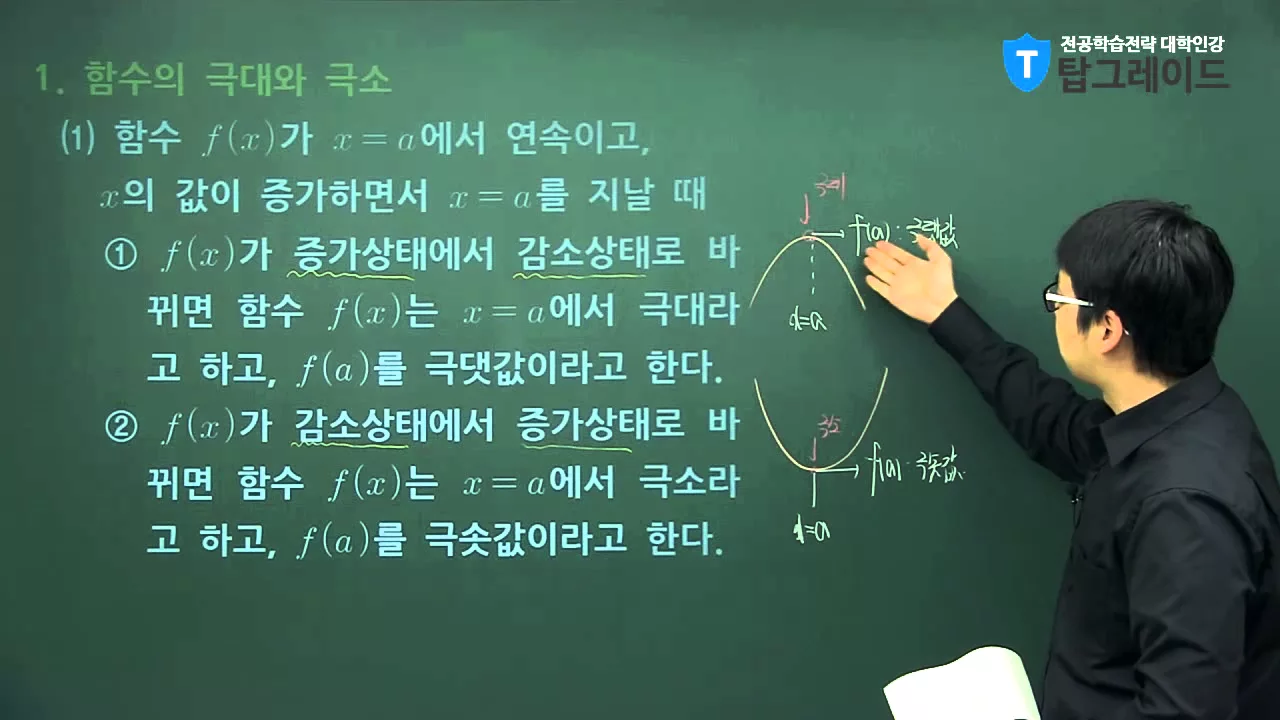 전공학습전략 대학인강
탑그레이드
1. 함수의 극대와 극소
(1) 함수 f(x)가 x = a에서 연속이고,
x의 값이 증가하면서 x = a를 지날 때
① f(x)가 증가상태에서 감소상태로 바
뀌면 함수 f(x)는 x = a에서 극대라
고 하고, f(a)를 극댓값이라고 한다.
② f(x)가 감소상태에서 증가상태로 바
뀌면 함수 f(x)는 x = a에서 극소라
고 하고, f(a)를 극솟값이라고 한다.
극대
f(a) : 극댓값
x=a
극소
f(a) : 극솟값
x=a